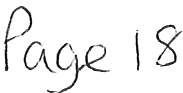 Page 18